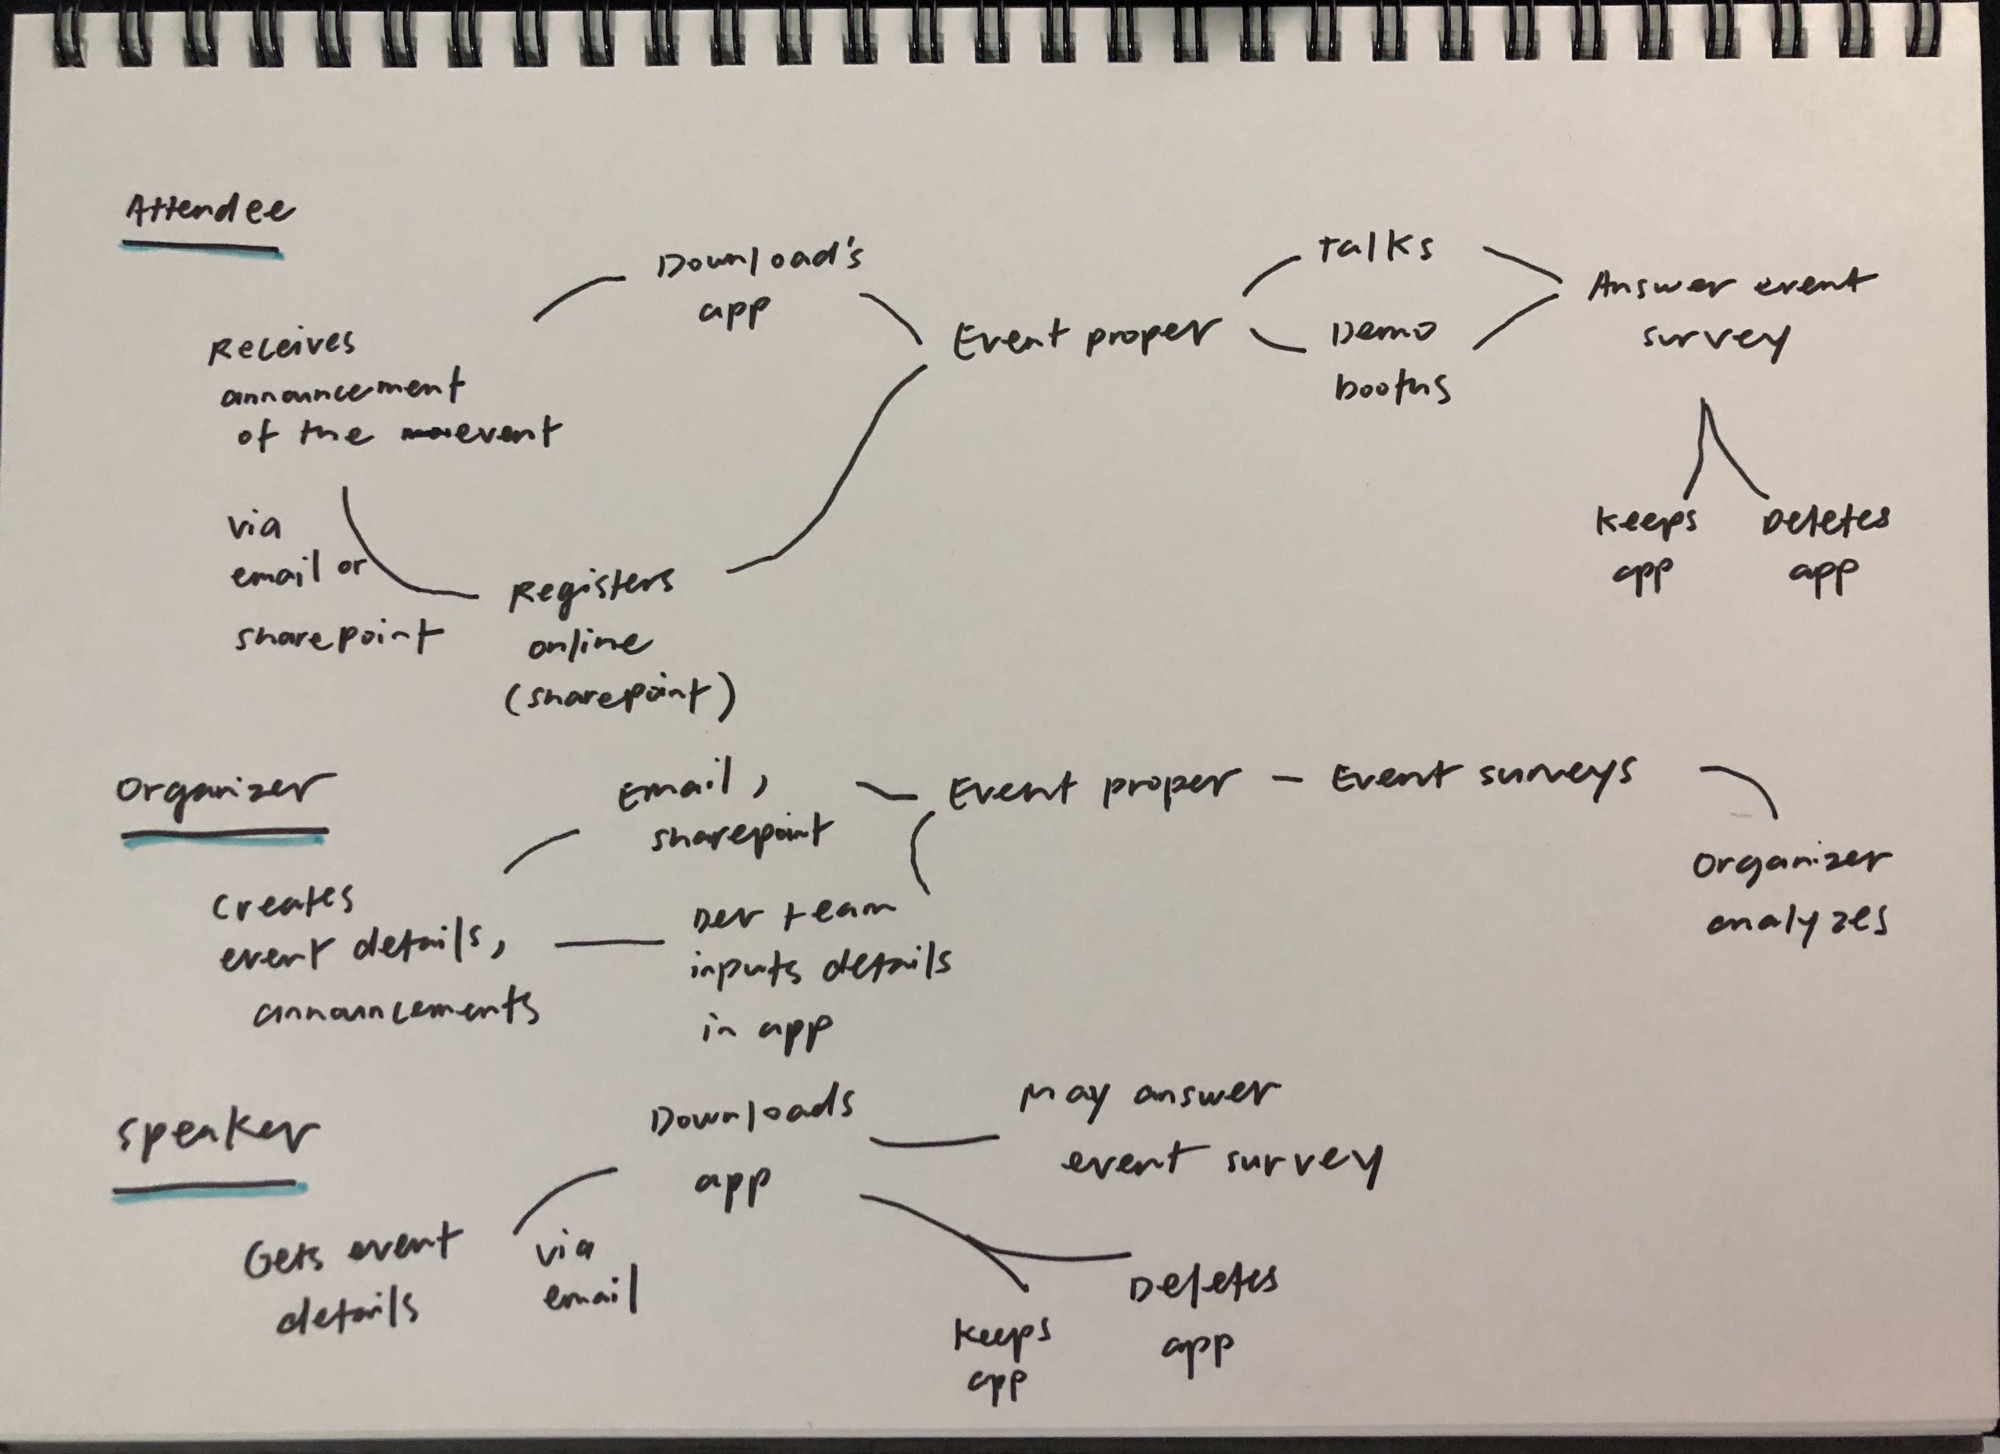 Attendee
Receives
announcement
of the event
via
email or
sharepoint
Download's
app
Registers
online
(sharepoint)
Event proper
Talks
Demo
booths
Answer event
survey
Keeps
app
Deletes
app
Organizer
Creates
event details,
announcements
Email,
sharepoint
Dev team
inputs details
in app
Event proper - Event surveys
Organizer
analyzes
Speaker
Gets event
details
via
email
Downloads
app
May answer
event survey
Keeps
app
Deletes
app